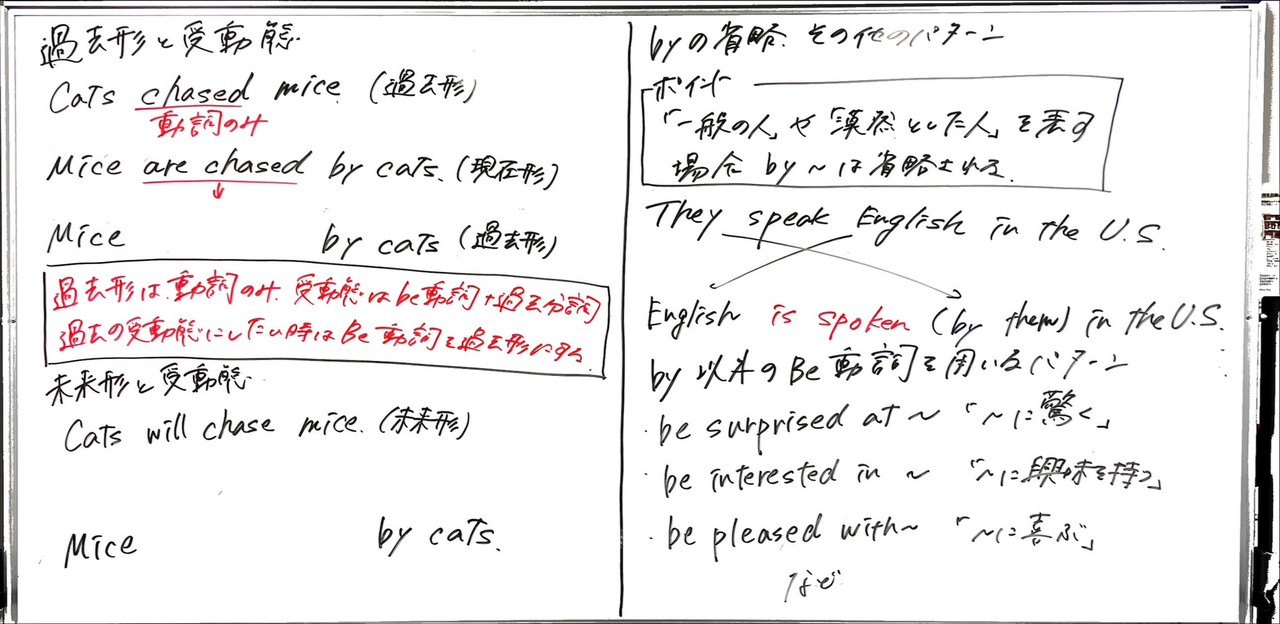 過去形と受動態
Cats chased mice (過去形)
動詞のみ
Mice are chased by cats. (現在形)
Mice by cats (過去形)
過去形は動詞のみ、受動態はbe動詞+過去分詞
過去の受動態にしたい時はBe動詞を過去形にする
未来形と受動態
Cats will chase mice. (未来形)
Mice by cats.
byの省略、その他のパターン
ポイント
「一般の人」や「漠然とした人」を表す
場合 by ~ は省略される.
They speak English in the U.S.
English is spoken (by them) in the U.S.
by 以外のBe動詞を用いるパターン
・be surprised at ~ 「~に驚く」
・be interested in ~ 「~に興味を持つ」
・be pleased with ~ 「~に喜ぶ」
など